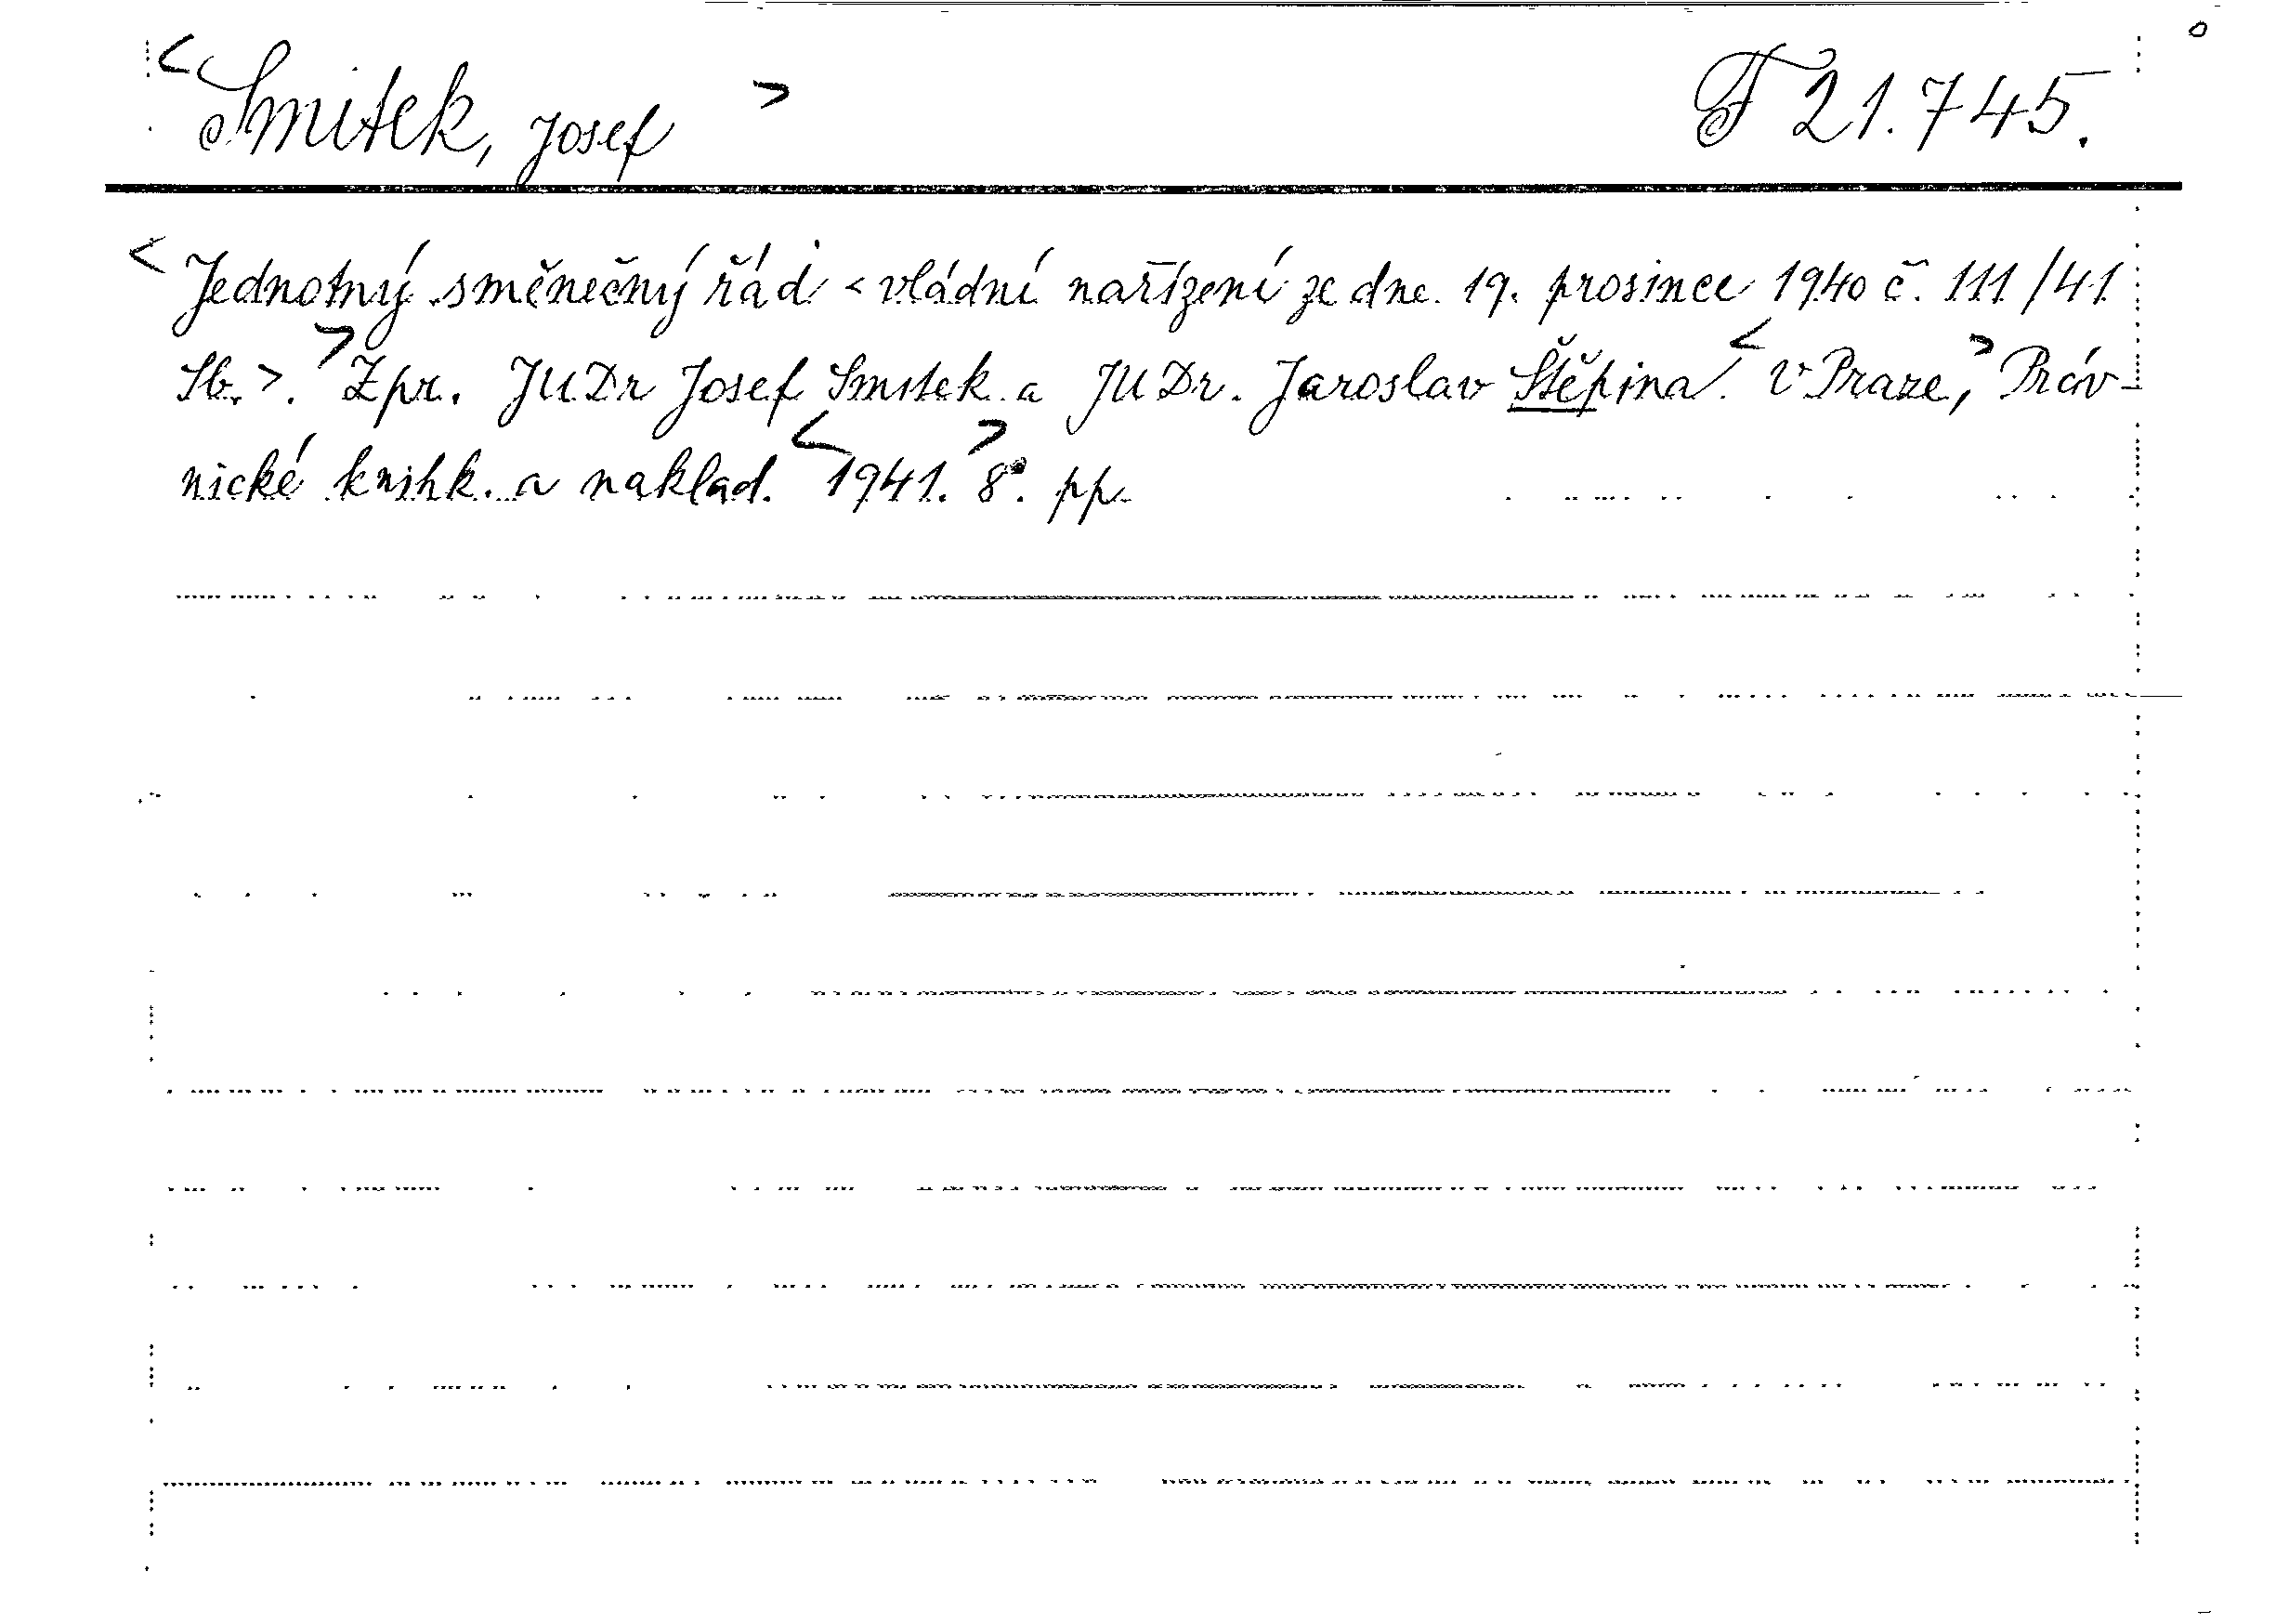 <Smitek, Josef> F 21.745.
<Jednotný směnečný řád <vládní nařízení ze dne 19. prosince 1940 č. 111/41
Sb.>.> Zpr. JUDr Josef Smitek a JUDr. Jaroslav Štěpina. <V Praze,> Práv-
nické knihk. a naklad. <1941.> 8°. pp.